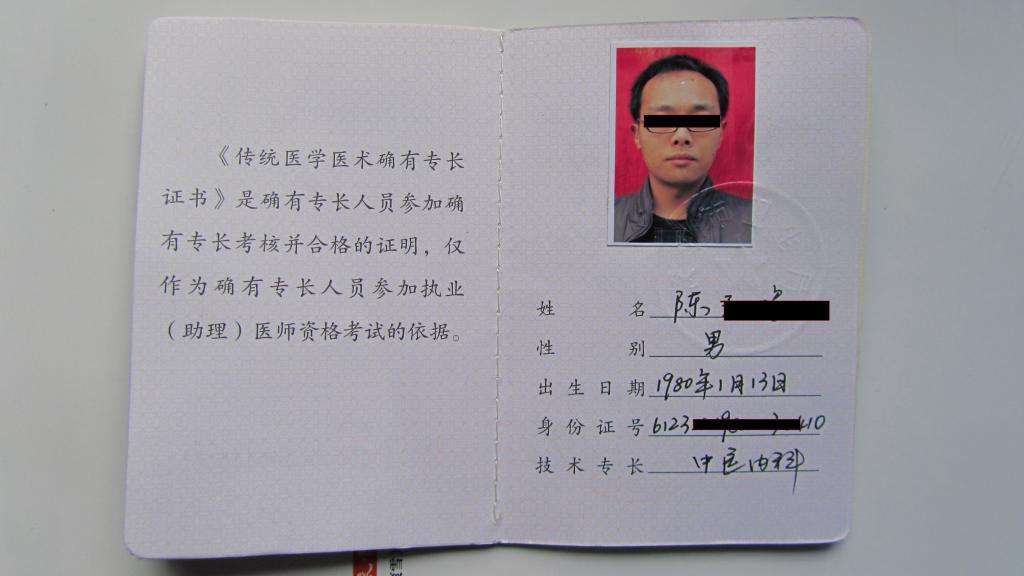 《传统医学医术确有专长
证书》是确有专长人员参加确
有专长考核并合格的证明，仅
作为确有专长人员参加执业
（助理）医师资格考试的依据。
姓 名 陈
性 别 男
出生日期 1980年1月13日
身份证号 6123 410
技术专长 中医内科